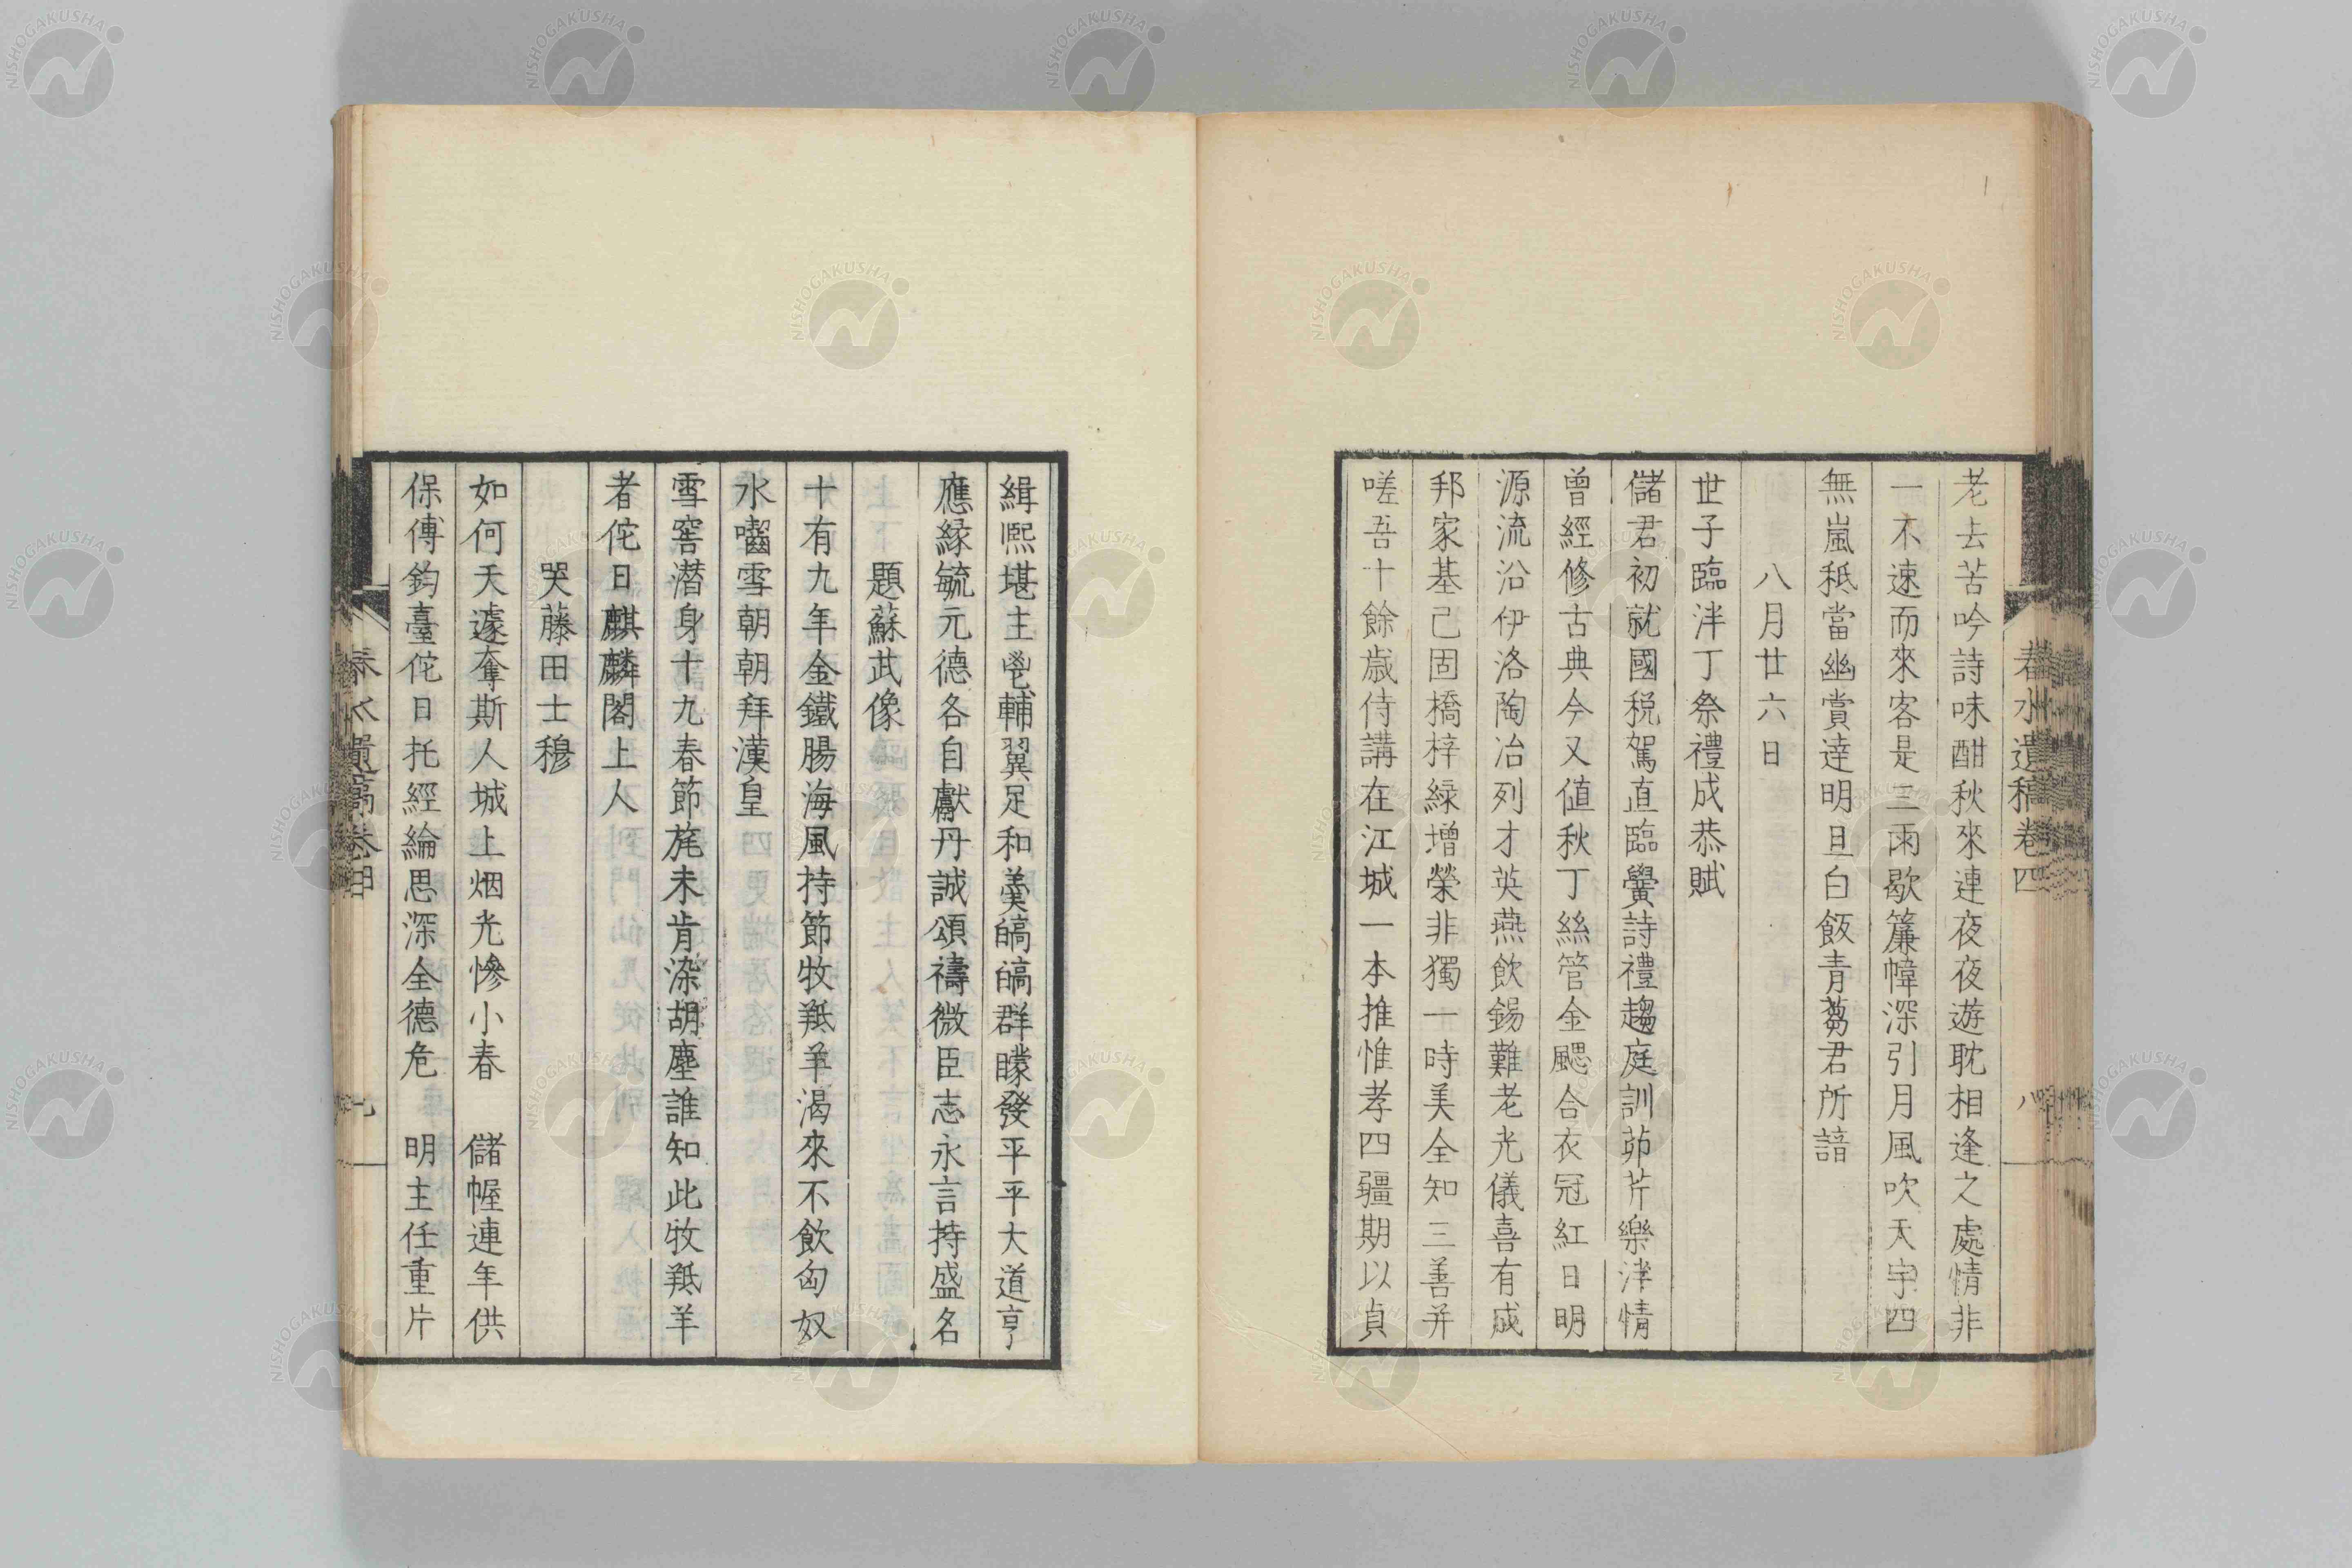 春水遺稿卷四
八
老去苦吟詩味酣秋來連夜夜遊耽相逢之處情非
一不速而來客是三雨歇簾幃深引月風吹天宇四
無嵐秪當幽賞達明旦白飯青蒭君所諳
八月廿六日
世子臨泮丁祭禮成恭賦
儲君初就國税駕直臨黌詩禮趨庭訓茆芹樂泮情
曾經修古典今又値秋丁絲管金颸合衣冠紅日明
源流沿伊洛陶冶列才英燕飲錫難老光儀喜有成
邦家基己固橋梓緑增榮非獨一時美全知三善并
嗟吾十餘歳侍講在江城一本推惟孝四疆期以貞
緝熙堪主鬯輔翼足和羹皜皜群矇發平平大道亨
應緣毓元德各自獻丹誠頌禱微臣志永言持盛名
題蘇武像
十有九年金鐵腸海風持節牧羝羊渴來不飲匈奴
水囓雪朝朝拜漢皇
雪窖潜身十九春節旄未肯染胡塵誰知此牧羝羊
者佗日麒麟閣上人
哭藤田士穆
如何天遽奪斯人城上烟光慘小春 儲幄連年供
保傅鈞臺佗日托經綸思深全德危 明主任重片
春水遺稿卷四
九
NISHOGAKUSHA